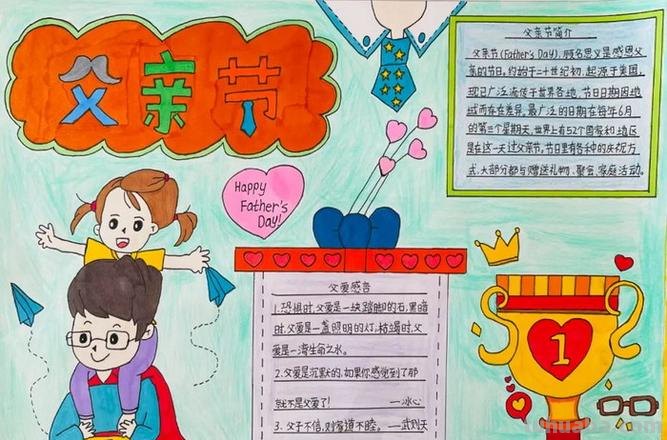 父亲节
Happy
Father's
Day!
父亲节简介
父亲节(Father's Day),顾名思义是感恩父
亲的节日。约始于二十世纪初,起源于美国,
现已广泛流传于世界各地,节日日期因地
域而存在差异。最广泛的日期在每年6月
的第三个星期天,世界上有52个国家和地区
是在这一天过父亲节。节日里有各种的庆祝方
式,大部分都与赠送礼物、聚会、家庭活动。
父爱感言
1.恐惧时,父爱是一块踏脚的石;黑暗
时,父爱是一盏照明的灯;枯竭时,父
爱是一湾生命之水。
2.父爱是沉默的,如果你感觉到了那
就不是父爱了! —冰心
3.父子不信,则家道不睦。 —武则天
1